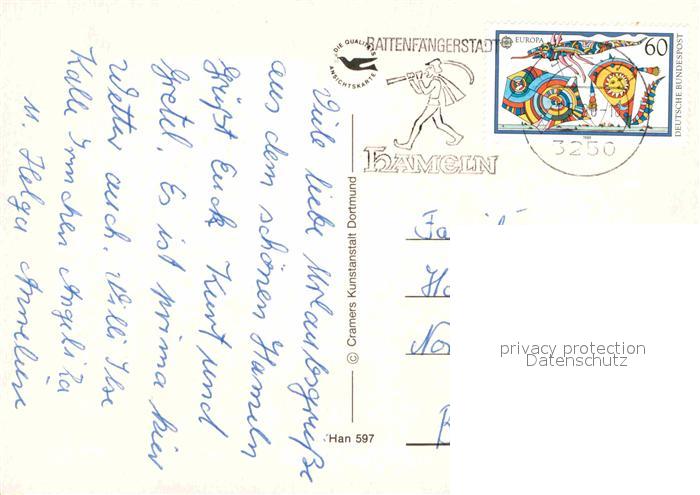 Viele liebe Urlaubsgrüße
aus dem schönen Hameln
grüßt Euch Kurt und
Gretel. Es ist prima hier
Wetter auch. Willi Ilse
Kalle Irmchen Angelika
u. Helga Anneliese
DIE QUALITÄTS
ANSICHTSKARTE
RATTENFÄNGERSTADT
HAMELN
EUROPA
60
DEUTSCHE BUNDESPOST
3250
© Cramers Kunstanstalt Dortmund
Han 597
privacy protection
Datenschutz